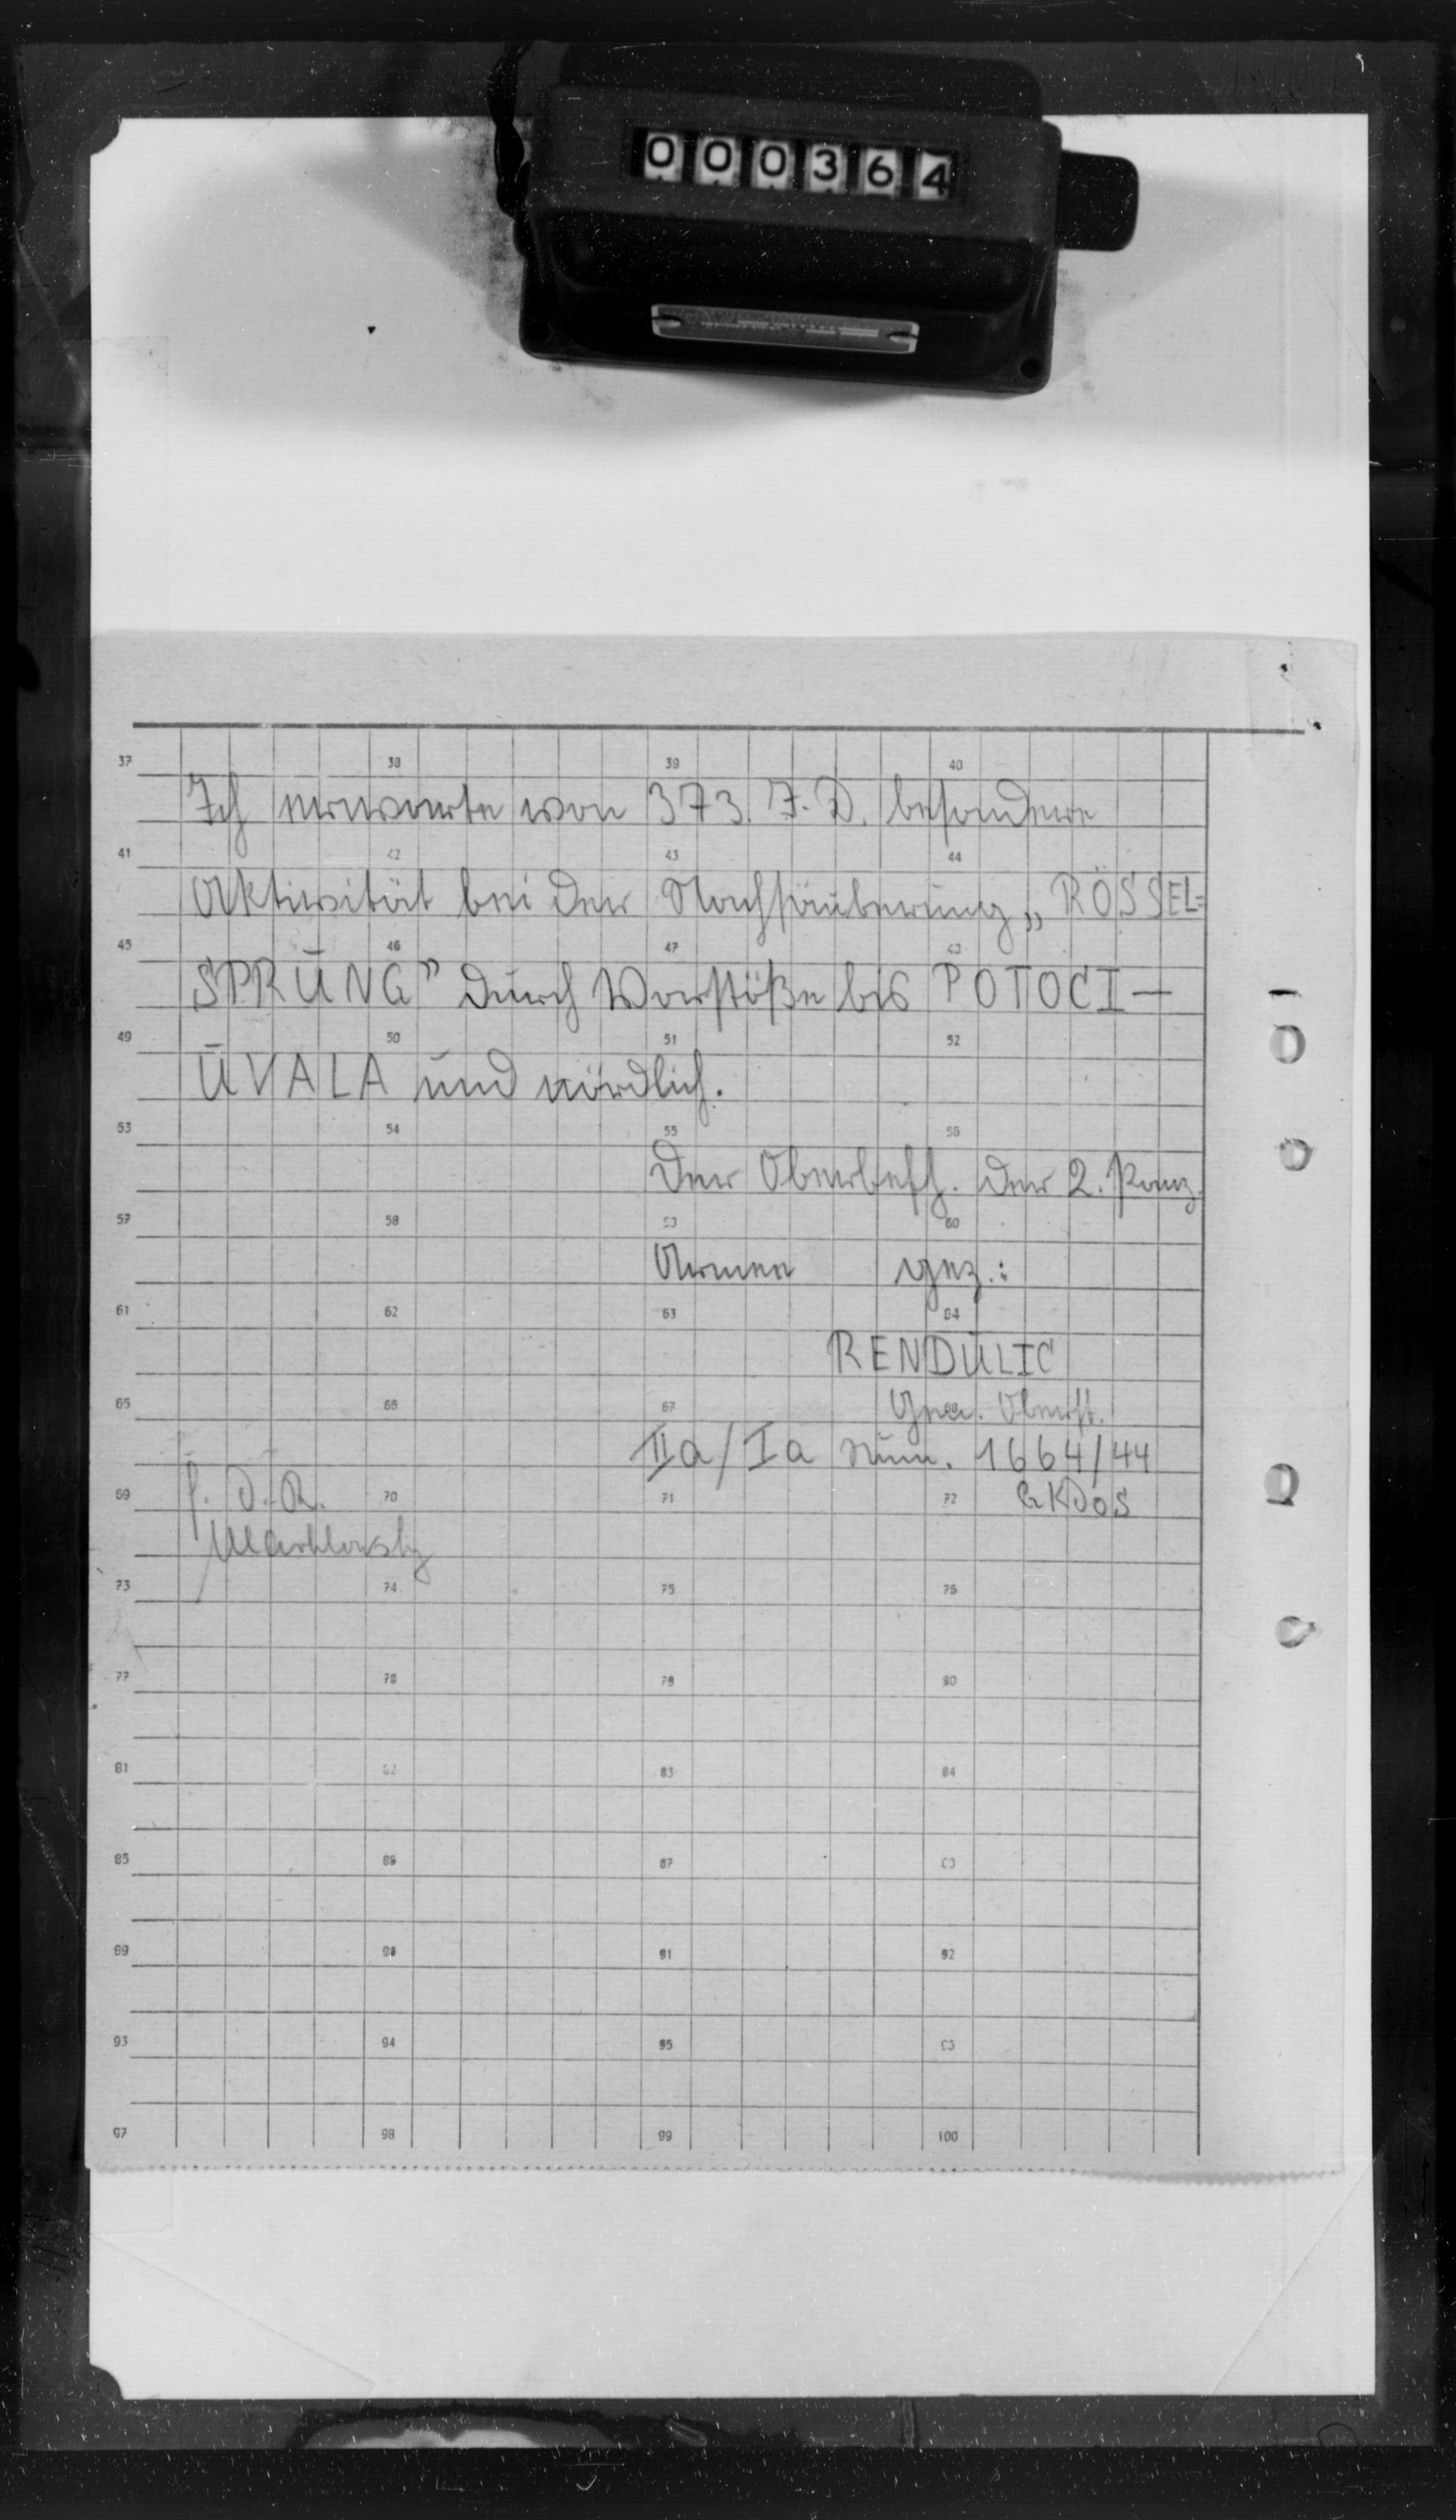 000364
37 38 39 40
Ich erwarte von 373. I. D. besondere
41 42 43 44
Aktivität bei der Nachsäuberung „RÖSSEL=
45 46 47 48
SPRUNG" durch Vorstöße bis POTOCI—
49 50 51 52
UVALA und nördlich.
53 54 55 56
Der Oberbefh. der 2. Panz.
57 58 59 60
Armee gez.:
61 62 63 64
RENDULIC
65 66 67 68
Gen. Oberst.
IIa/Ia Num. 1664/44
f. d. R.
69 70 71 72 GKDOS
73 74 75 76
77 78 79 80
81 82 83 84
85 86 87 88
89 90 91 92
93 94 95 96
97 98 99 100